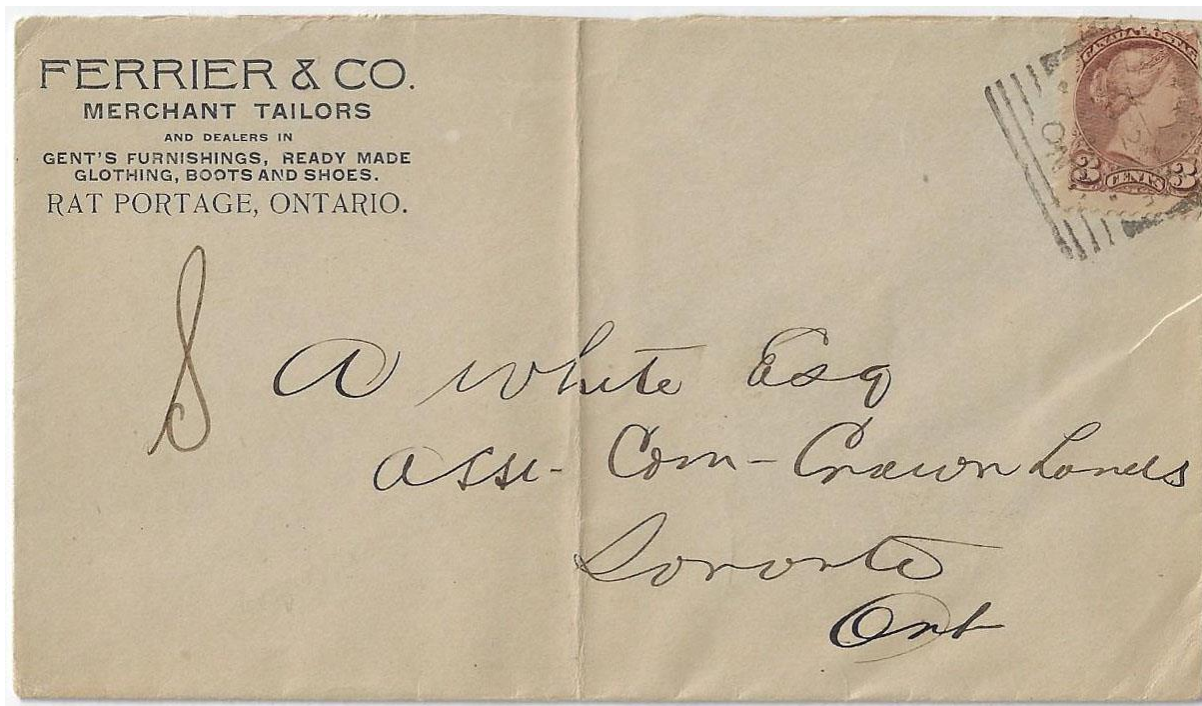 FERRIER & CO.
MERCHANT TAILORS
AND DEALERS IN
GENT'S FURNISHINGS, READY MADE
GLOTHING, BOOTS AND SHOES.
RAT PORTAGE, ONTARIO.
CANADA POSTAGE
3 CENTS 3
A White Esq
Asst- Com- Crown Lands
Toronto
Ont